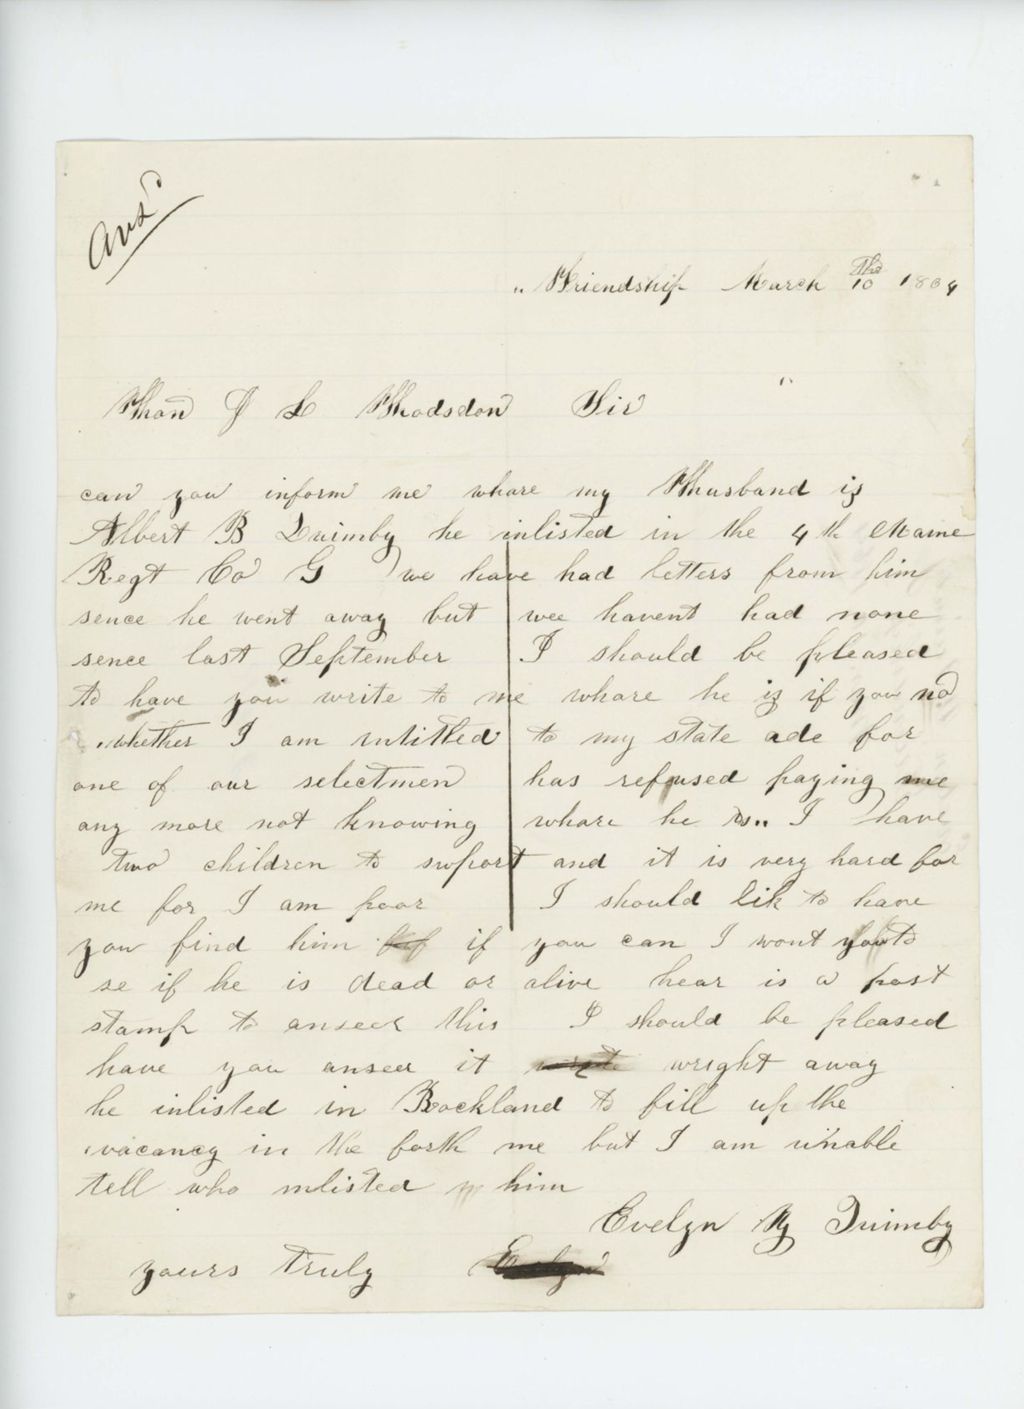 Ansd
Friendship March 10 The 1864
Hon J L Hodsdon Sir
can you inform me whare my Husband is
Albert B Quimby he inlisted in the 4th Maine
Regt Co G we have had letters from him
sence he went away but wee havent had none
sence last September I should be pleased
to have you write to me whare he is if you no
whether I am intitled to my state ade for
one of our selectmen has refused paying me
any more not knowing whare he is.. I have
two children to suport and it is very hard for
me for I am poor I should lik to have
you find him if you can I wont you to
se if he is dead or alive hear is a post
stamp to anseer this I should be pleased
have you anseer it wright away
he inlisted in Rockland to fill up the
vacancy in the forth me but I am unable
tell who inlisted him
Evelyn Quimby
yours truly